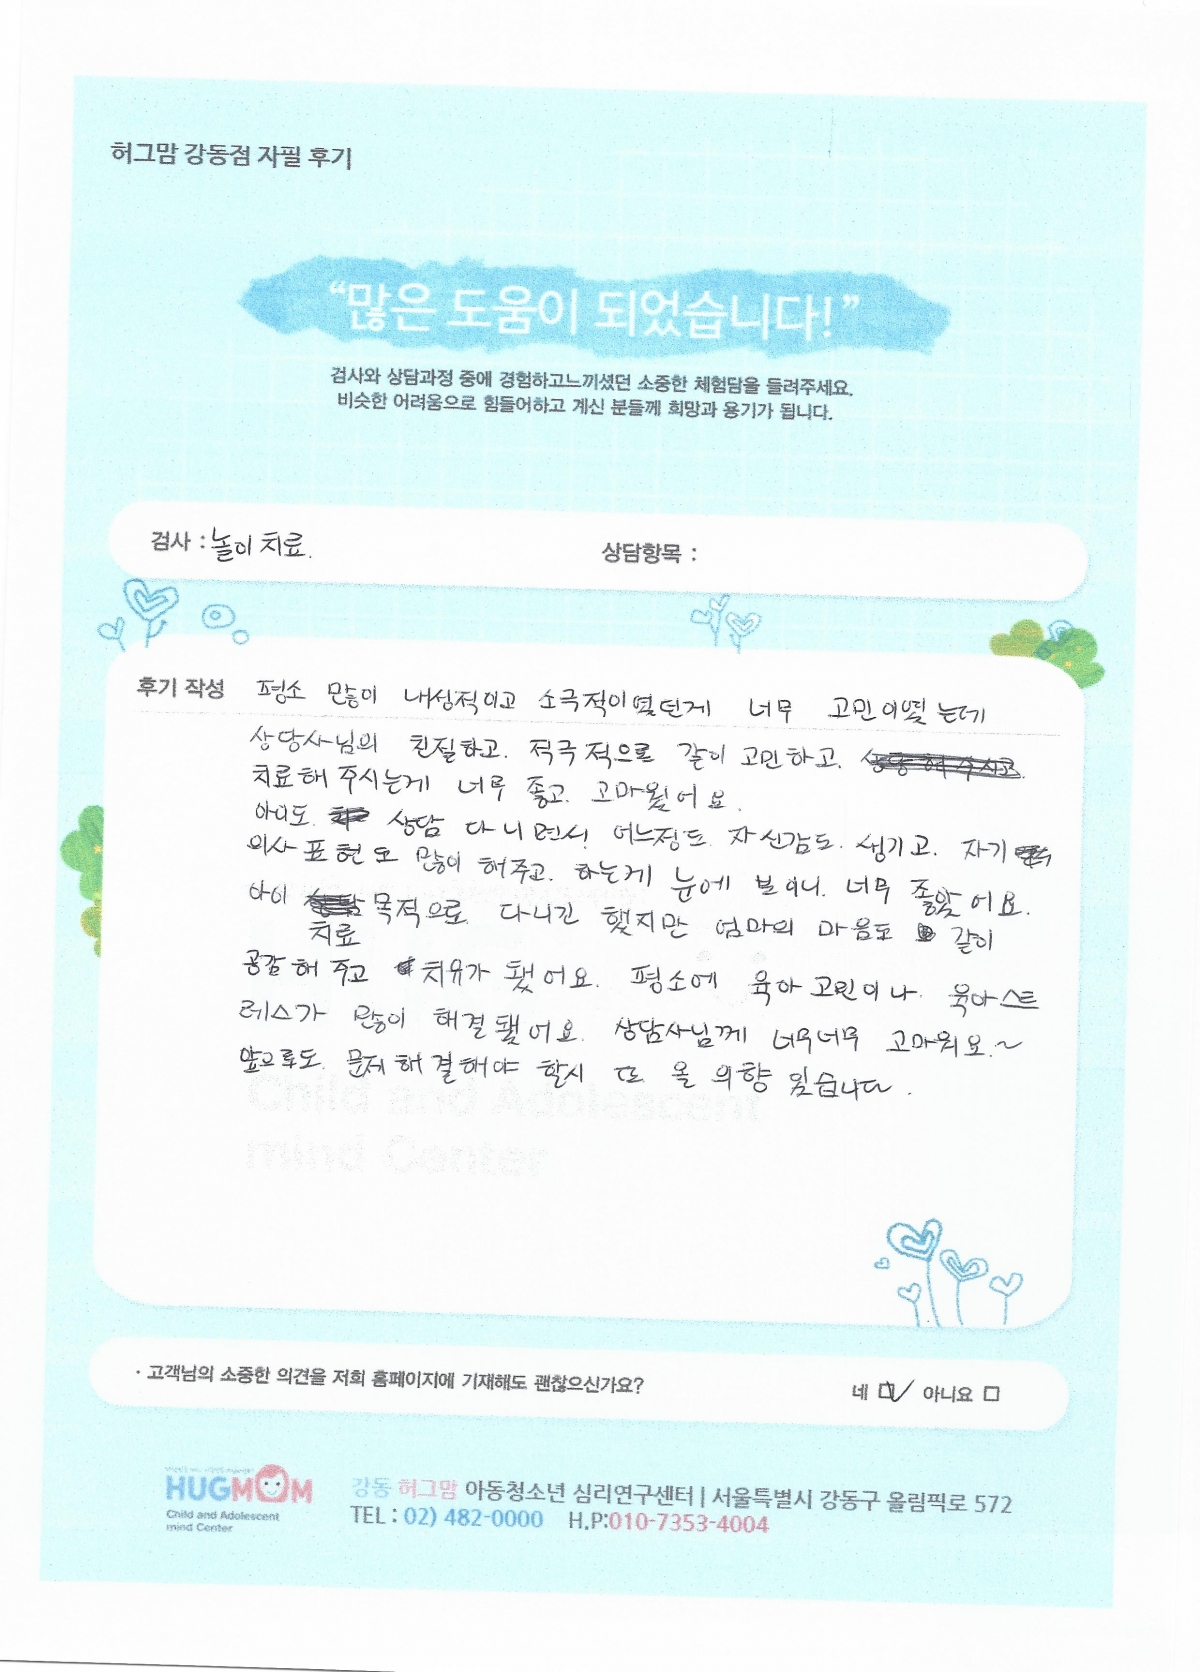 허그맘 강동점 자필 후기
“많은 도움이 되었습니다!”
검사와 상담과정 중에 경험하고느끼셨던 소중한 체험담을 들려주세요.
비슷한 어려움으로 힘들어하고 계신 분들께 희망과 용기가 됩니다.
검사 : 놀이 치료. 상담항목 :
후기 작성 평소 많이 내성적이고 소극적이였던게 너무 고민이였는데
상담사님의 친절하고. 적극적으로 같이 고민하고.
치료해 주시는게 너무 좋고. 고마웠어요.
아이도. 상담 다니면서! 어느정도. 자신감도. 생기고. 자기
의사 표현도 많이 해주고. 하는게 눈에 보이니. 너무 좋았어요.
아이 치료 목적으로. 다니긴 했지만 엄마의 마음도 같이
공감해 주고 치유가 됐어요. 평소에 육아 고민이나 육아스트
레스가 많이 해결됐어요. 상담사님께 너무너무 고마워요.~
앞으로도. 문제해결해야 할시 또 올 의향 있습니다.
Child and Adolescent
mind Center
· 고객님의 소중한 의견을 저희 홈페이지에 기재해도 괜찮으신가요? 네 ☑ 아니요 □
HUGMOM
Child and Adolescent
mind Center
강동 허그맘 아동청소년 심리연구센터 | 서울특별시 강동구 올림픽로 572
TEL : 02) 482-0000 H.P:010-7353-4004